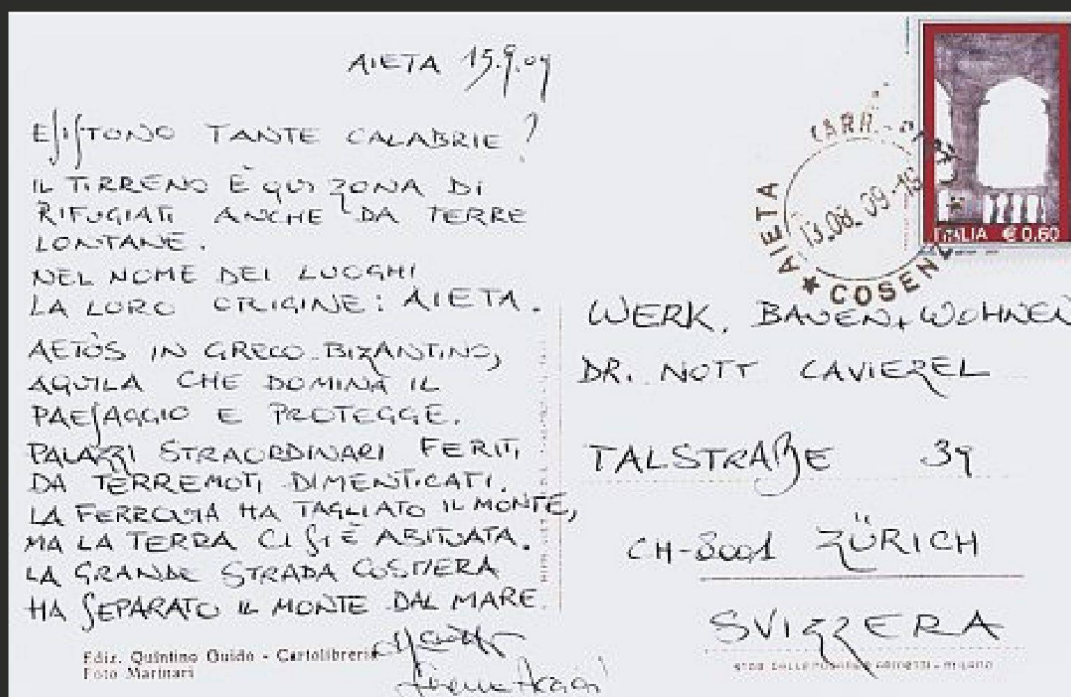 AIETA 15.9.09
ESISTONO TANTE CALABRIE?
IL TIRRENO È QUI ZONA DI
RIFUGIATI ANCHE DA TERRE
LONTANE.
NEL NOME DEI LUOGHI
LA LORO ORIGINE: AIETA.
AETÒS IN GRECO-BIZANTINO,
AQUILA CHE DOMINA IL
PAESAGGIO E PROTEGGE.
PALAZZI STRAORDINARI FERITI
DA TERREMOTI DIMENTICATI.
LA FERROVIA HA TAGLIATO IL MONTE,
MA LA TERRA CI SI È ABITUATA.
LA GRANDE STRADA COSTIERA
HA SEPARATO IL MONTE DAL MARE.
Ediz. Quintino Guido - Cartolibreria
Foto Marinari
ITALIA € 0,60
AIETA
COSENZA
WERK, BAUEN+WOHNEN
DR. NOTT CAVIEZEL
TALSTRAßE 39
CH-8001 ZÜRICH
SVIZZERA